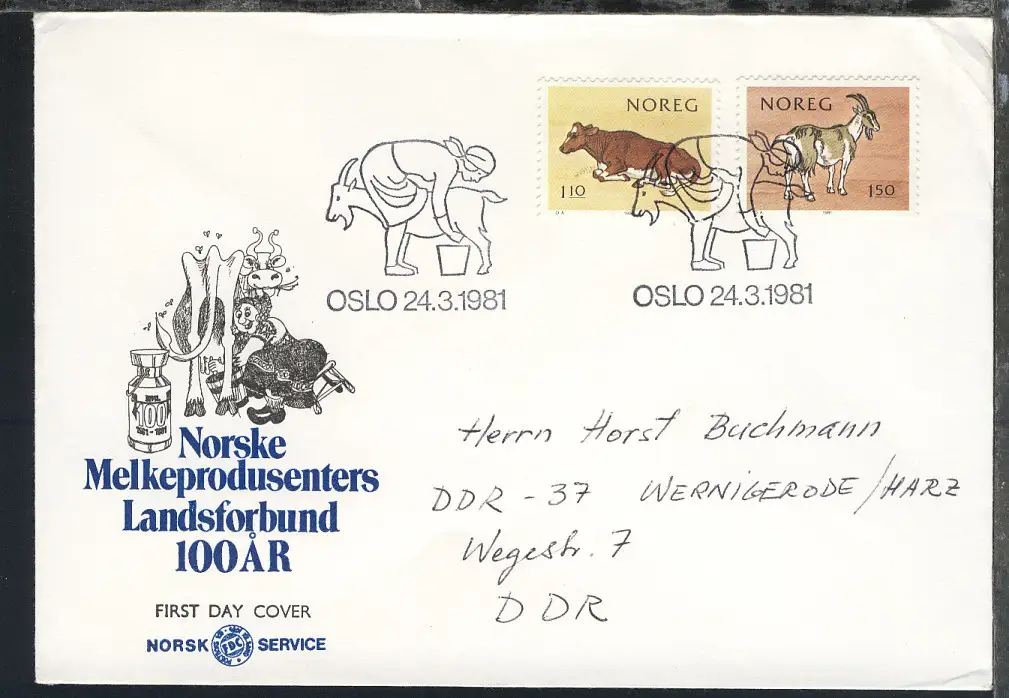 NOREG
110
NOREG
150
1981
OSLO 24.3.1981
OSLO 24.3.1981
100
1881-1981
Norske
Melkeprodusenters
Landsforbund
100 ÅR
FIRST DAY COVER
NORSK FDC SERVICE
Herrn Horst Buchmann
DDR - 37 WERNIGERODE/HARZ
Wegestr. 7
DDR